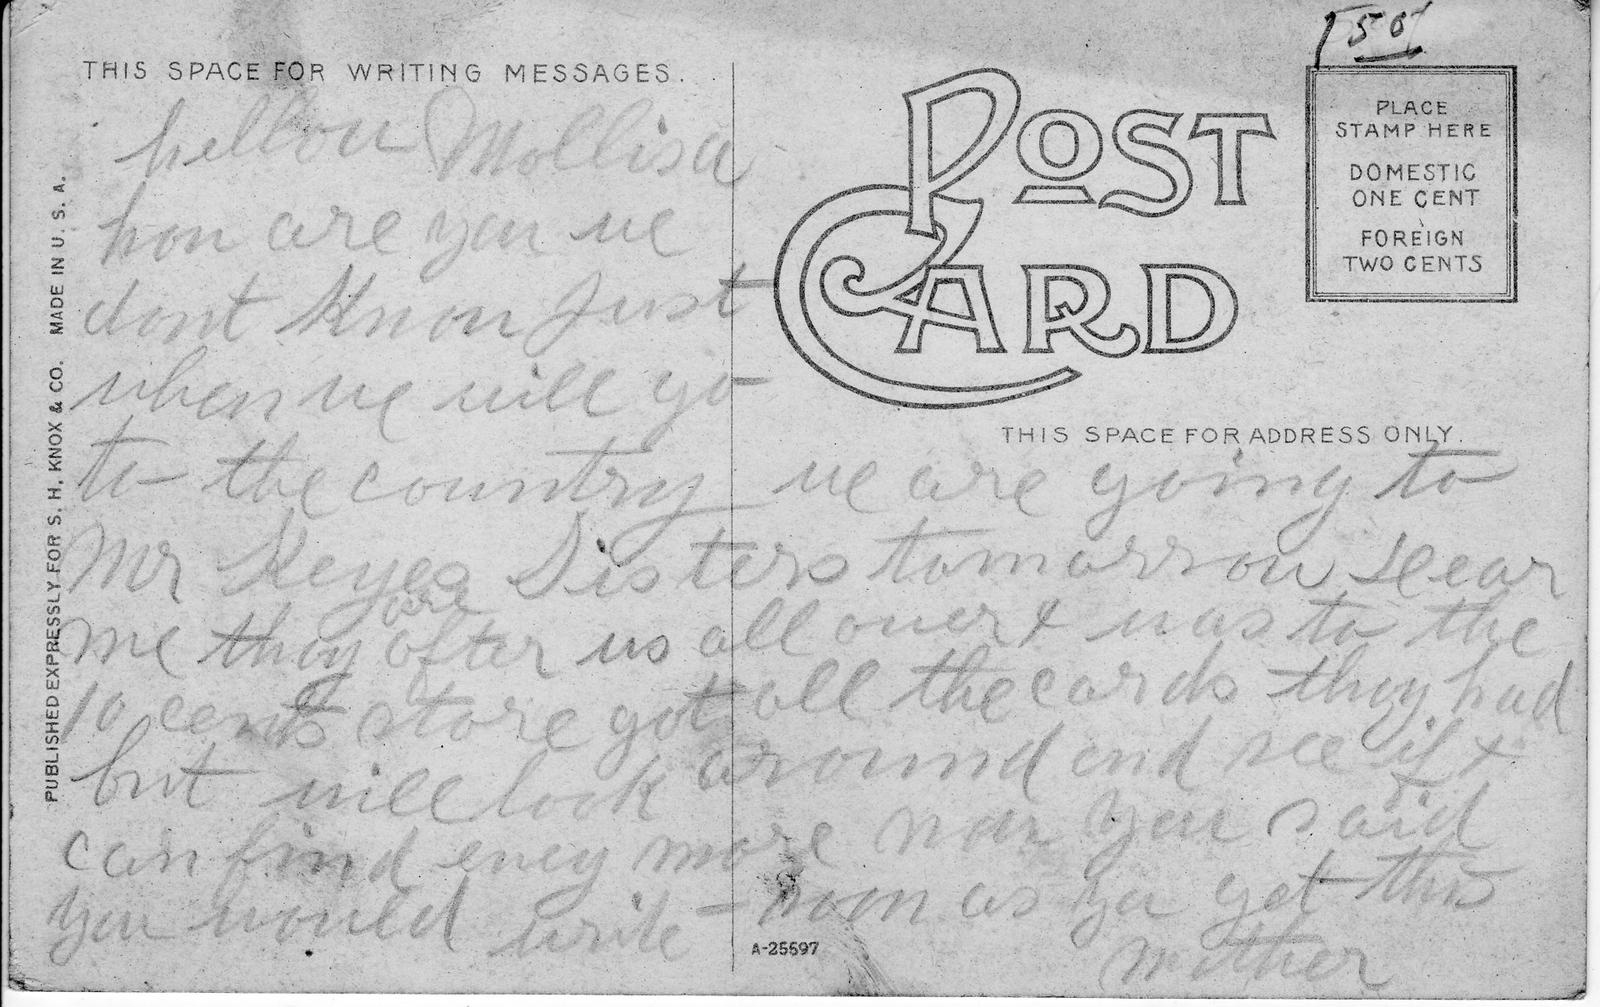 150
THIS SPACE FOR WRITING MESSAGES.
POST
CARD
PLACE
STAMP HERE
DOMESTIC
ONE CENT
FOREIGN
TWO CENTS
THIS SPACE FOR ADDRESS ONLY.
PUBLISHED EXPRESSLY FOR S. H. KNOX & CO. MADE IN U. S. A.
hellou Mollisa
hou are you we
dont Know Just
when we will go
to the country we are going to
Mr Keyes Sisters tomorrou Dear
me they are after us all over I was to the
10 cents store got all the cards they had
but will look around and see if I
can find eney more nou you said
you would write soon as you get this
mother
A-25597